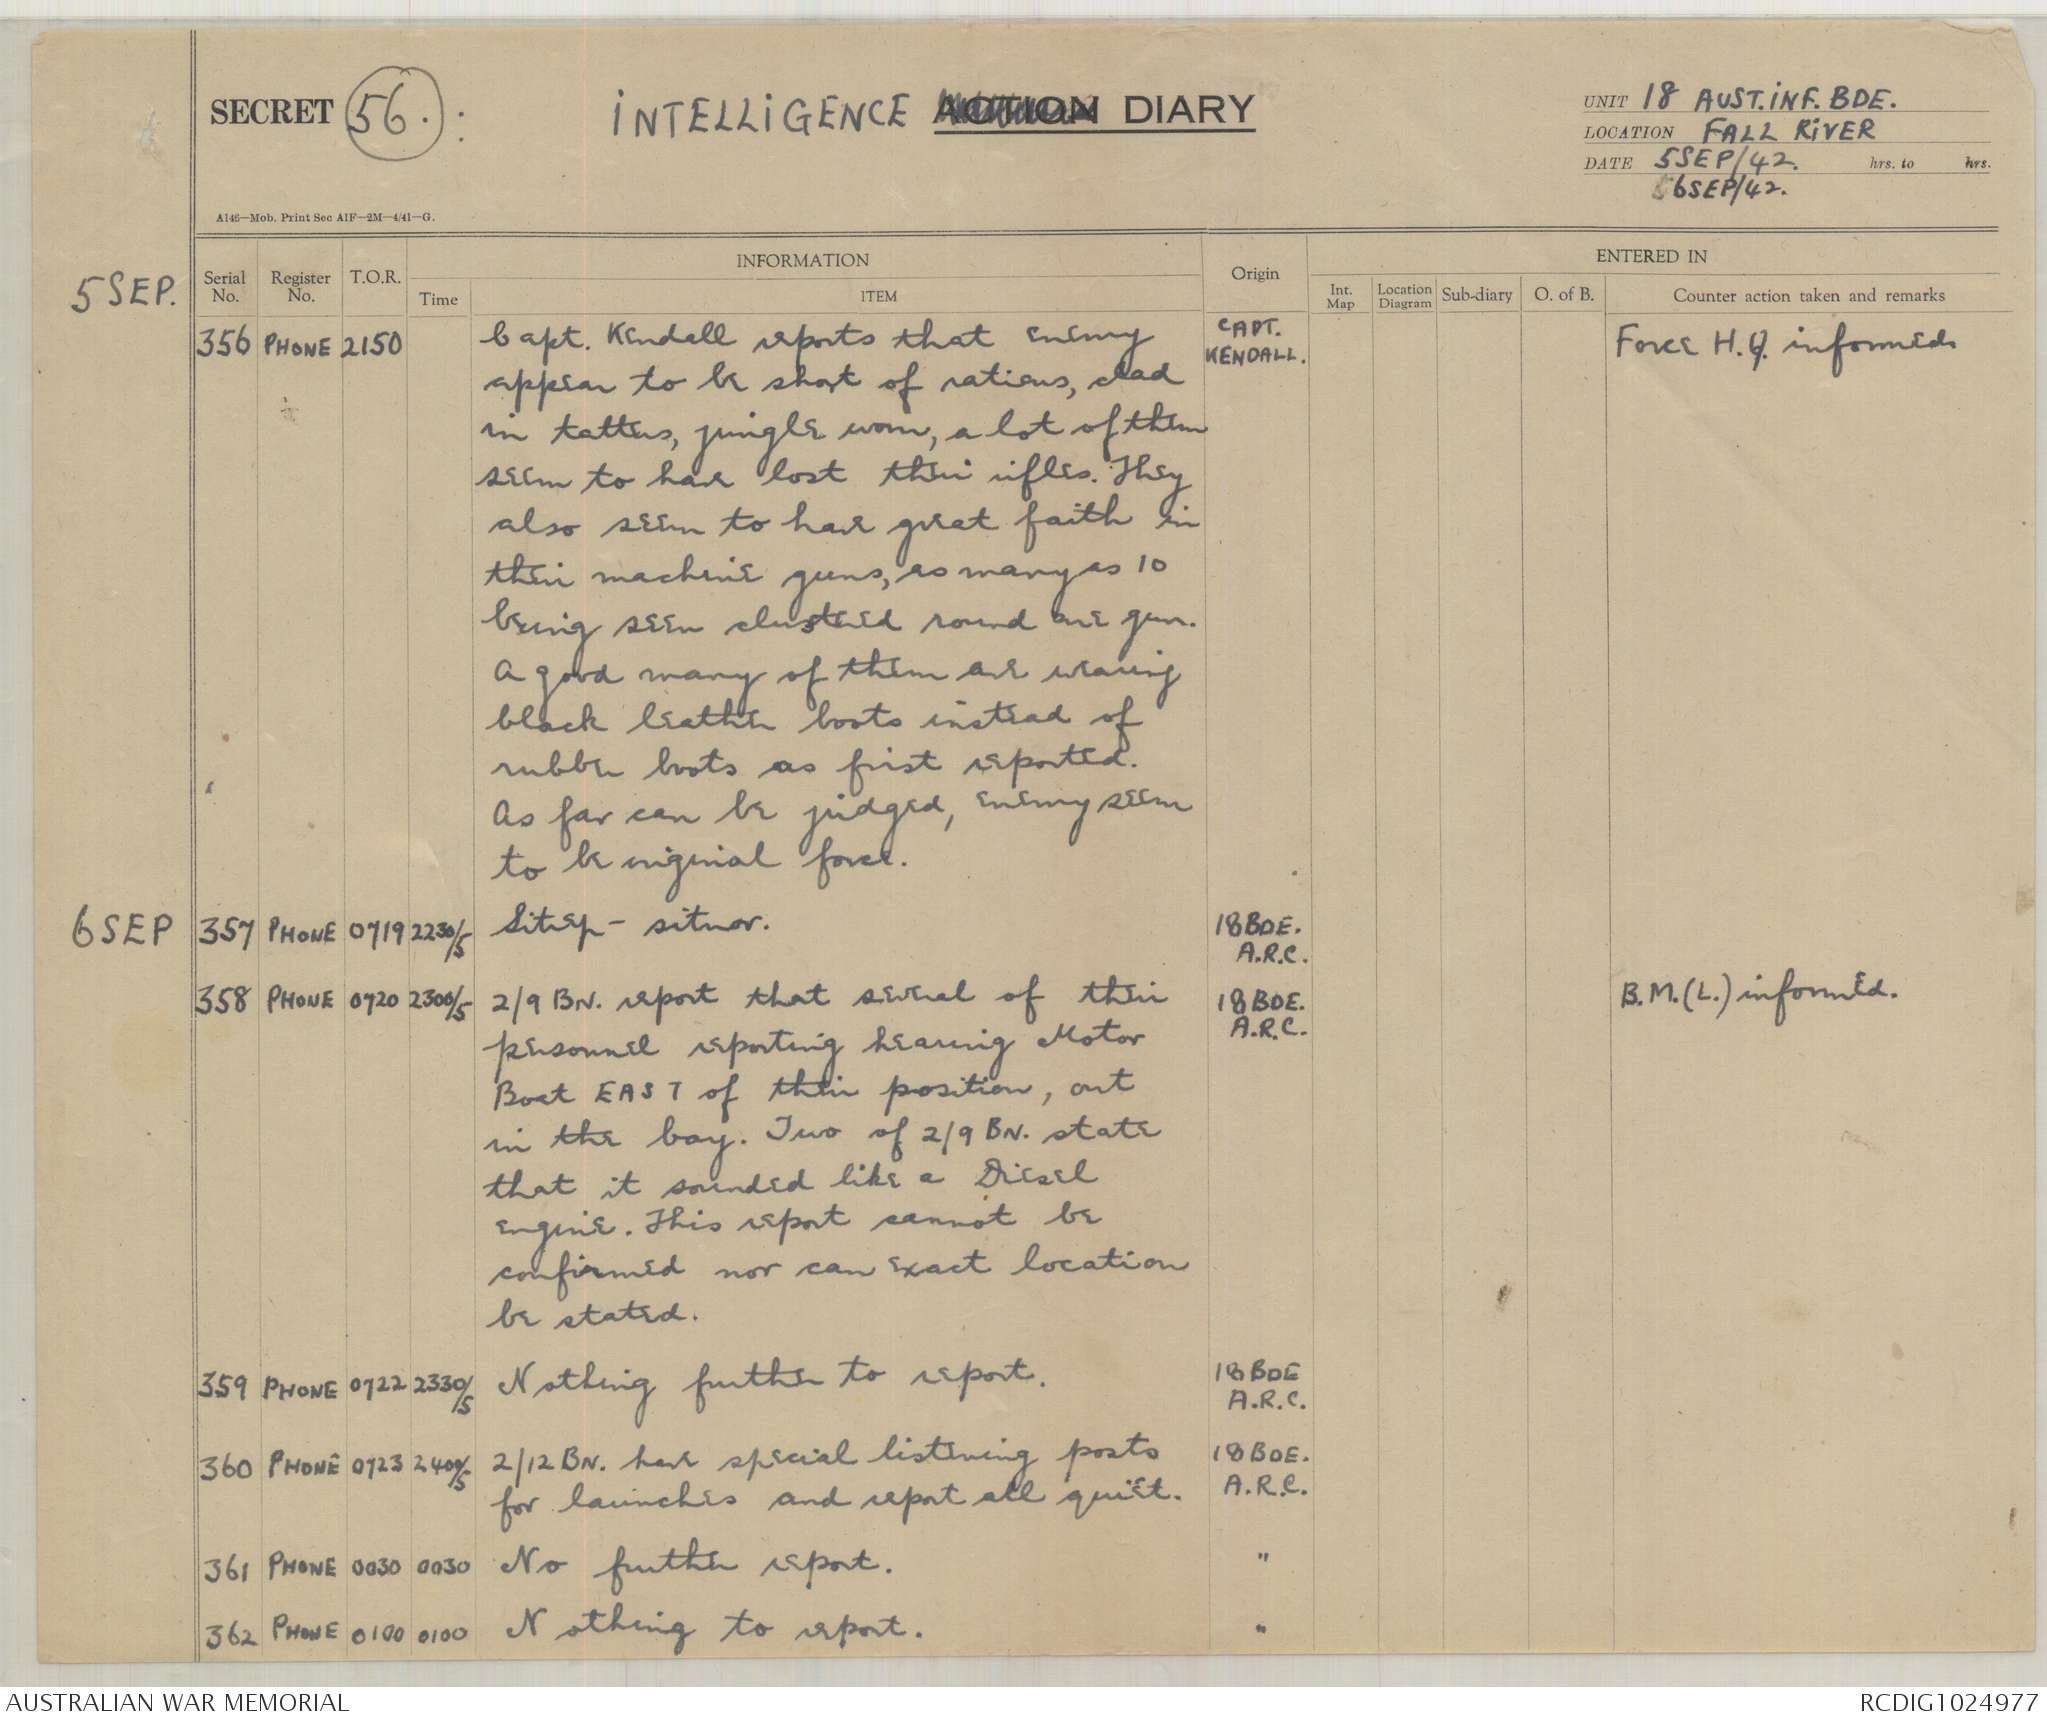 SECRET 56.
INTELLIGENCE ACTION DIARY
UNIT 18 AUST.INF.BDE.
LOCATION FALL RIVER
DATE 5SEP/42. hrs. to hrs.
6SEP/42.
A146—Mob. Print Sec AIF—2M—4/41—G.
INFORMATION
ENTERED IN
5 SEP.
Serial No. Register No. T.O.R. Time ITEM Origin Int. Map Location Diagram Sub-diary O. of B. Counter action taken and remarks
356 PHONE 2150 Capt. Kendall reports that enemy CAPT. Force H.Q. informed.
appear to be short of rations, clad KENDALL.
in tatters, jungle worn, a lot of them
seem to have lost their rifles. They
also seem to have great faith in
their machine guns, as many as 10
being seen clustered round one gun.
A good many of them are wearing
black leather boots instead of
rubber boots as first reported.
As far can be judged, enemy seem
to be original force.
6 SEP 357 PHONE 0719 2230/5 Sitrep - sitnor. 18 BDE.
A.R.C.
358 PHONE 0720 2300/5 2/9 BN. report that several of their 18 BDE. B.M.(L.) informed.
personnel reporting hearing Motor A.R.C.
Boat EAST of their position, out
in the bay. Two of 2/9 BN. state
that it sounded like a Diesel
engine. This report cannot be
confirmed nor can exact location
be stated.
359 PHONE 0722 2330/5 Nothing further to report. 18 BDE
A.R.C.
360 PHONE 0723 2400/5 2/12 BN. have special listening posts 18 BDE.
for launches and report all quiet. A.R.C.
361 PHONE 0030 0030 No further report. "
362 PHONE 0100 0100 Nothing to report. "
AUSTRALIAN WAR MEMORIAL RCDIG1024977